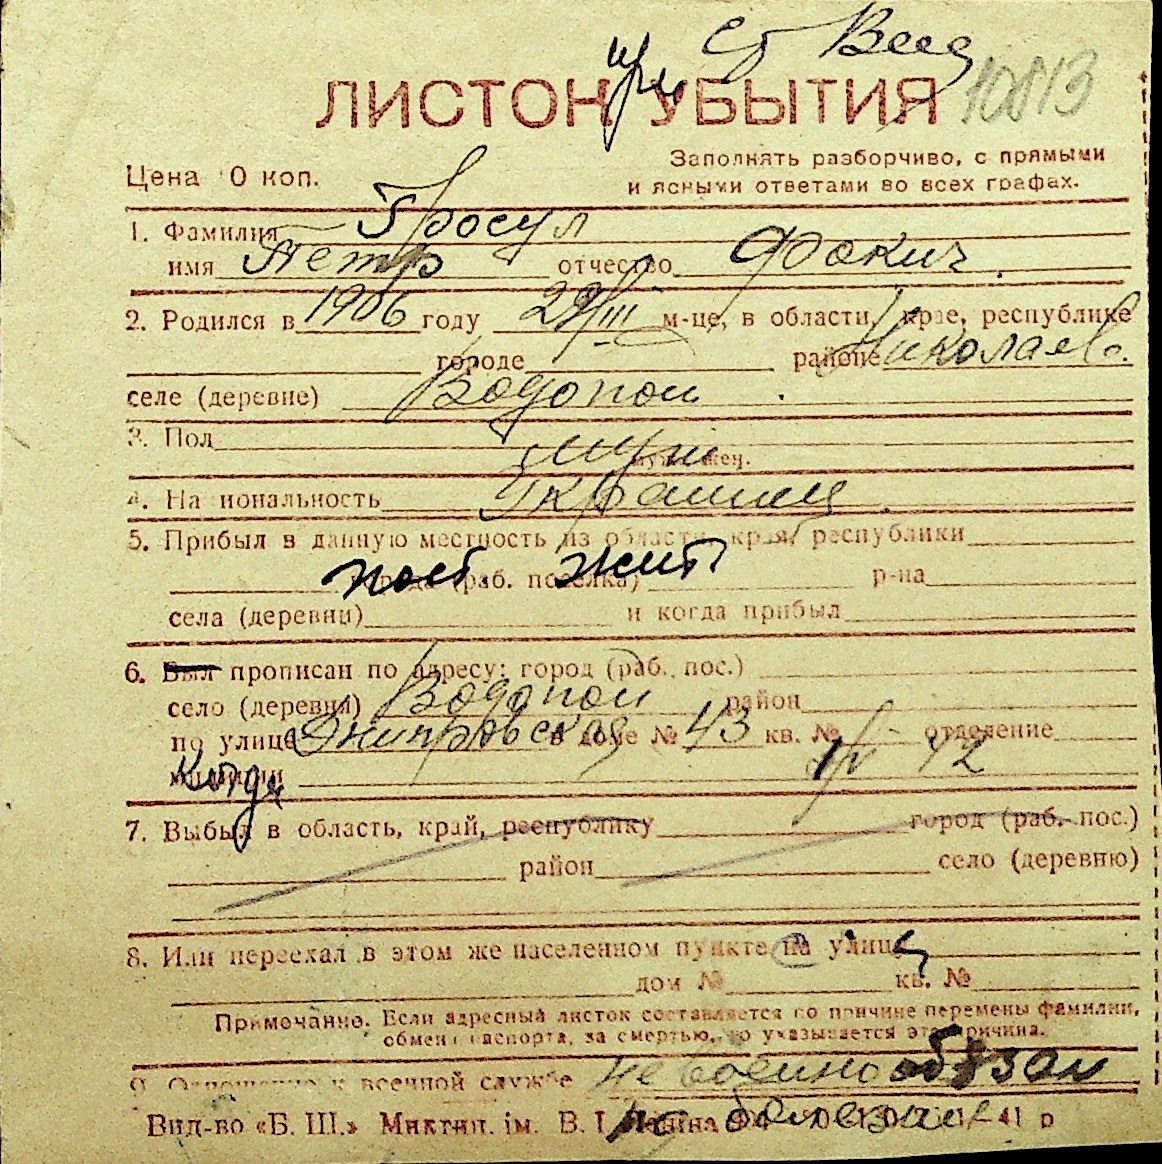 при
ЛИСТОН УБЫТИЯ 10813
Цена 0 коп.
Заполнять разборчиво, с прямыми
и ясными ответами во всех графах.
1. Фамилия Просул
имя Петр отчество Фокич.
2. Родился в 1906 году 29/III м-це, в области, крае, республике
городе районе Николаев.
селе (деревне) Водопой
3. Пол муж
муж. жен.
4. На иональность Украинец.
5. Прибыл в данную местность из области, края, республики
пост жит
города (раб. поселка) р-на
села (деревни) и когда прибыл
6. Был прописан по адресу: город (раб. пос.)
село (деревня) Водопой район
по улице Днипровская в доме № 43 кв. № отделение
милиции
Когда
7. Выбыл в область, край, республику город (раб. пос.)
район село (деревню)
8. Или переехал в этом же населенном пункте на улицу
дом № кв. №
Примечание. Если адресный листок составляется по причине перемены фамилии,
обмена паспорта, за смертью, то указывается эта причина.
9. Отношение к военной службе невоеннообязан
по болезни
Вид-во «Б. Ш.» Миктип. ім. В. І. Леніна 41 р